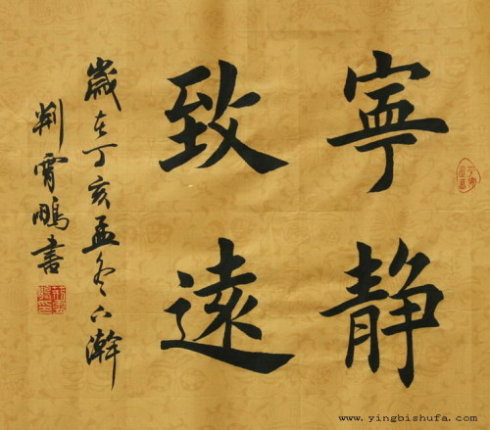 寧静
致遠
歲在丁亥孟冬下澣
荆霄鵬書
www.yingbishufa.com